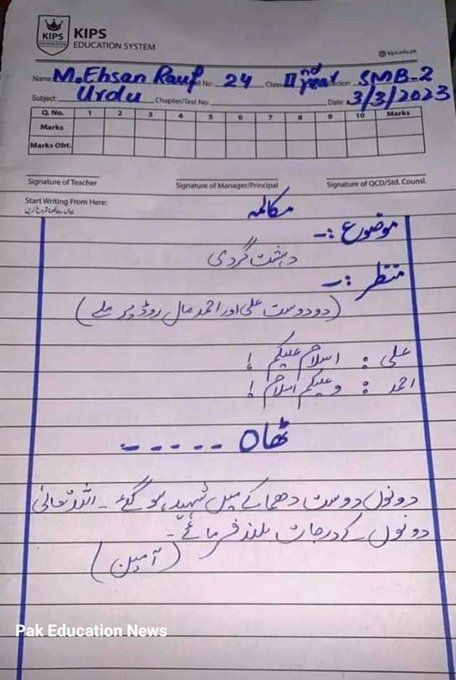 KIPS
KIPS
EDUCATION SYSTEM
kips.edu.pk
Name M.Ehsan Rauf Roll No: 24 Class II nd year Section SMB-2
Subject: Urdu Chapter/Test No: Date: 3/3/2023
Q. No. 1 2 3 4 5 6 7 8 9 10 Marks
Marks
Marks Obt.
Signature of Teacher Signature of Manager/Principal Signature of QCD/Std. Counsl.
Start Writing From Here:
مکالمہ
موضوع :-
دہشت گردی
منظر :-
(دو دوست علی اور احمد مال روڈ پر ملے)
علی : اسلام علیکم !
احمد : وعلیکم اسلام !
ٹھاہ - - - - -
دونوں دوست دھماکے میں شہید ہو گئے ۔ اللہ تعالیٰ
دونوں کے درجات بلند فرمائے۔
(آمین)
Pak Education News